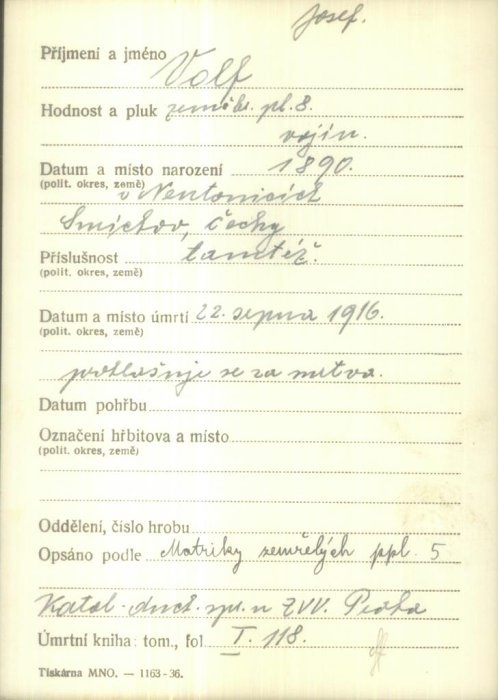 Josef.
Příjmení a jméno Volf
Hodnost a pluk zeměbr. pl. 8.
vojín.
Datum a místo narození 1890.
(polit. okres, země) v Nentonicích
Smíchov, Čechy
Příslušnost tamtéž.
(polit. okres, země)
Datum a místo úmrtí 22. srpna 1916.
(polit. okres, země)
prohlašuje se za mrtva.
Datum pohřbu
Označení hřbitova a místo
(polit. okres, země)
Oddělení, číslo hrobu
Opsáno podle Matriky zemřelých ppl. 5
Katol. duch. spr. u ZVV. Praha
Úmrtní kniha: tom., fol. I. 118.
Tiskárna MNO. — 1163-36.